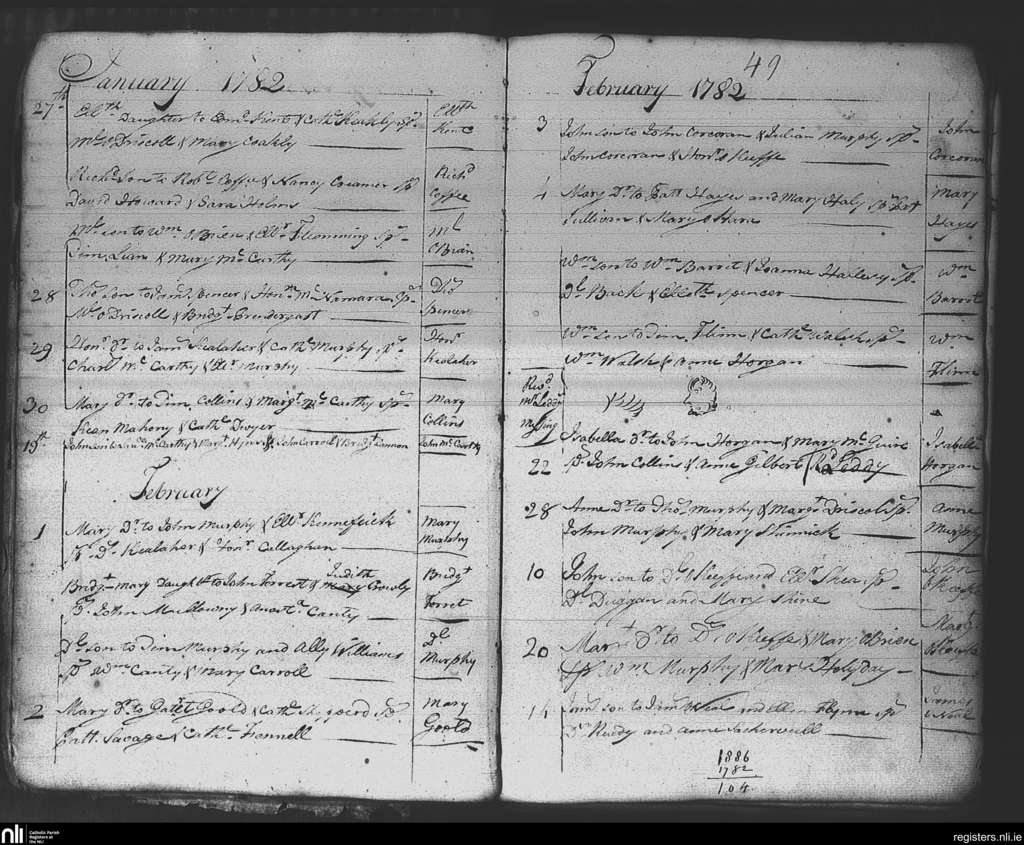 January 1782
27th Elth Daughter to Edmd Kent & Cathe Keahly Sps
Ml O Driscoll & Mary Coakly
Elth
Kent
Richd Son to Robt Coffee & Nancy Creamer Sp
David Howard & Sara Holms
Richd
Coffee
Ml son to Wm OBrien & Ellr Flemming Sps
Tim Lian & Mary McCarthy
Ml
OBrian
28 Thos Son to Jams Spencer & Honrh McNamara Sps
Ml O Driscoll & Bridgt Prendergast
Thos
Spencer
29 Honr Dr to Jams Kealaher & Cathe Murphy Sps
Charls McCarthy & Elnr Murphy
Honr
Kealaher
30 Mary Dr to Tim Collins & Margt McCarthy Sps
Kean Mahony & Cathe Dwyer
Mary
Collins
19th John son to McCarthy & Margt & John Carroll & Bridgt Gannon
John McCarthy
February
1 Mary Dr to John Murphy & Ellr Kenneficick
Sps Ds Kealaher & Honr Callaghan
Mary
Murphy
Bridgt Mary Daughter to John Forrest & Judith Mary Crowly
Sp John Mullowny & Anasts Canty
Bridgt
Forrest
Dl son to Tim Murphy and Ally Williams
Sps Wm Canty & Mary Carroll
Dl
Murphy
2 Mary Dr to Garet Goold & Cathe Shepperd Sps
Patt Savage & Cathe Fennell
Mary
Goold
49
February 1782
3 John son to John Corcoran & Julian Murphy Sps
John Corcoran & Honra Kieffe
John
Corcoran
4 Mary Dr to Patt Hayes and Mary Haly Sps Pat
Sullivan & Mary OHara
Mary
Hayes
Wm son to Wm Barret & Joanna Hallesey Sps
Dl Back & Elleth Spencer
Wm
Barret
Wm son to Tim Flinn & Cathe Walsh Sps
Wm Walsh & Anne Horgan
Wm
Flinn
Revd
Mr Leddy
Missing
Isabella Dr to John Horgan & Mary McGuire
22 Sp John Collins & Anne Gilbert Rd Leddy
Isabella
Horgan
28 Anne Dr to Thos Murphy & Margt Driscol Sps
John Murphy & Mary Shinnick
Anne
Murphy
10 John son to Dl OKeeffe and Ellr Shea Sps
Dl Duggan and Mary Shine
John
OKeeffe
20 Margt Dr to Dl OKeeffe & Mary OBrien
Sps Wm Murphy & Mary Holyday
Margt
OKeeffe
14 Jams son to Jams Neal and Ellen Flynn Sps
Ruddy and Anne Sackervill
James
Neal
1886
1782
104
nli Catholic Parish
Registers at
the NLI
registers.nli.ie